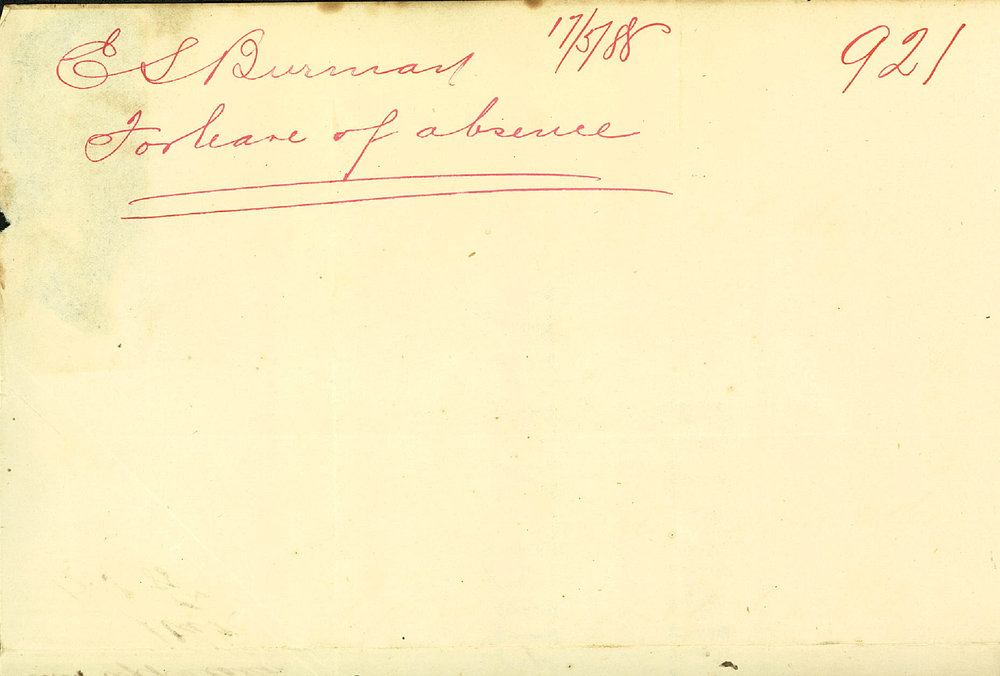 E S Burman 17/5/88 921
For leave of absence